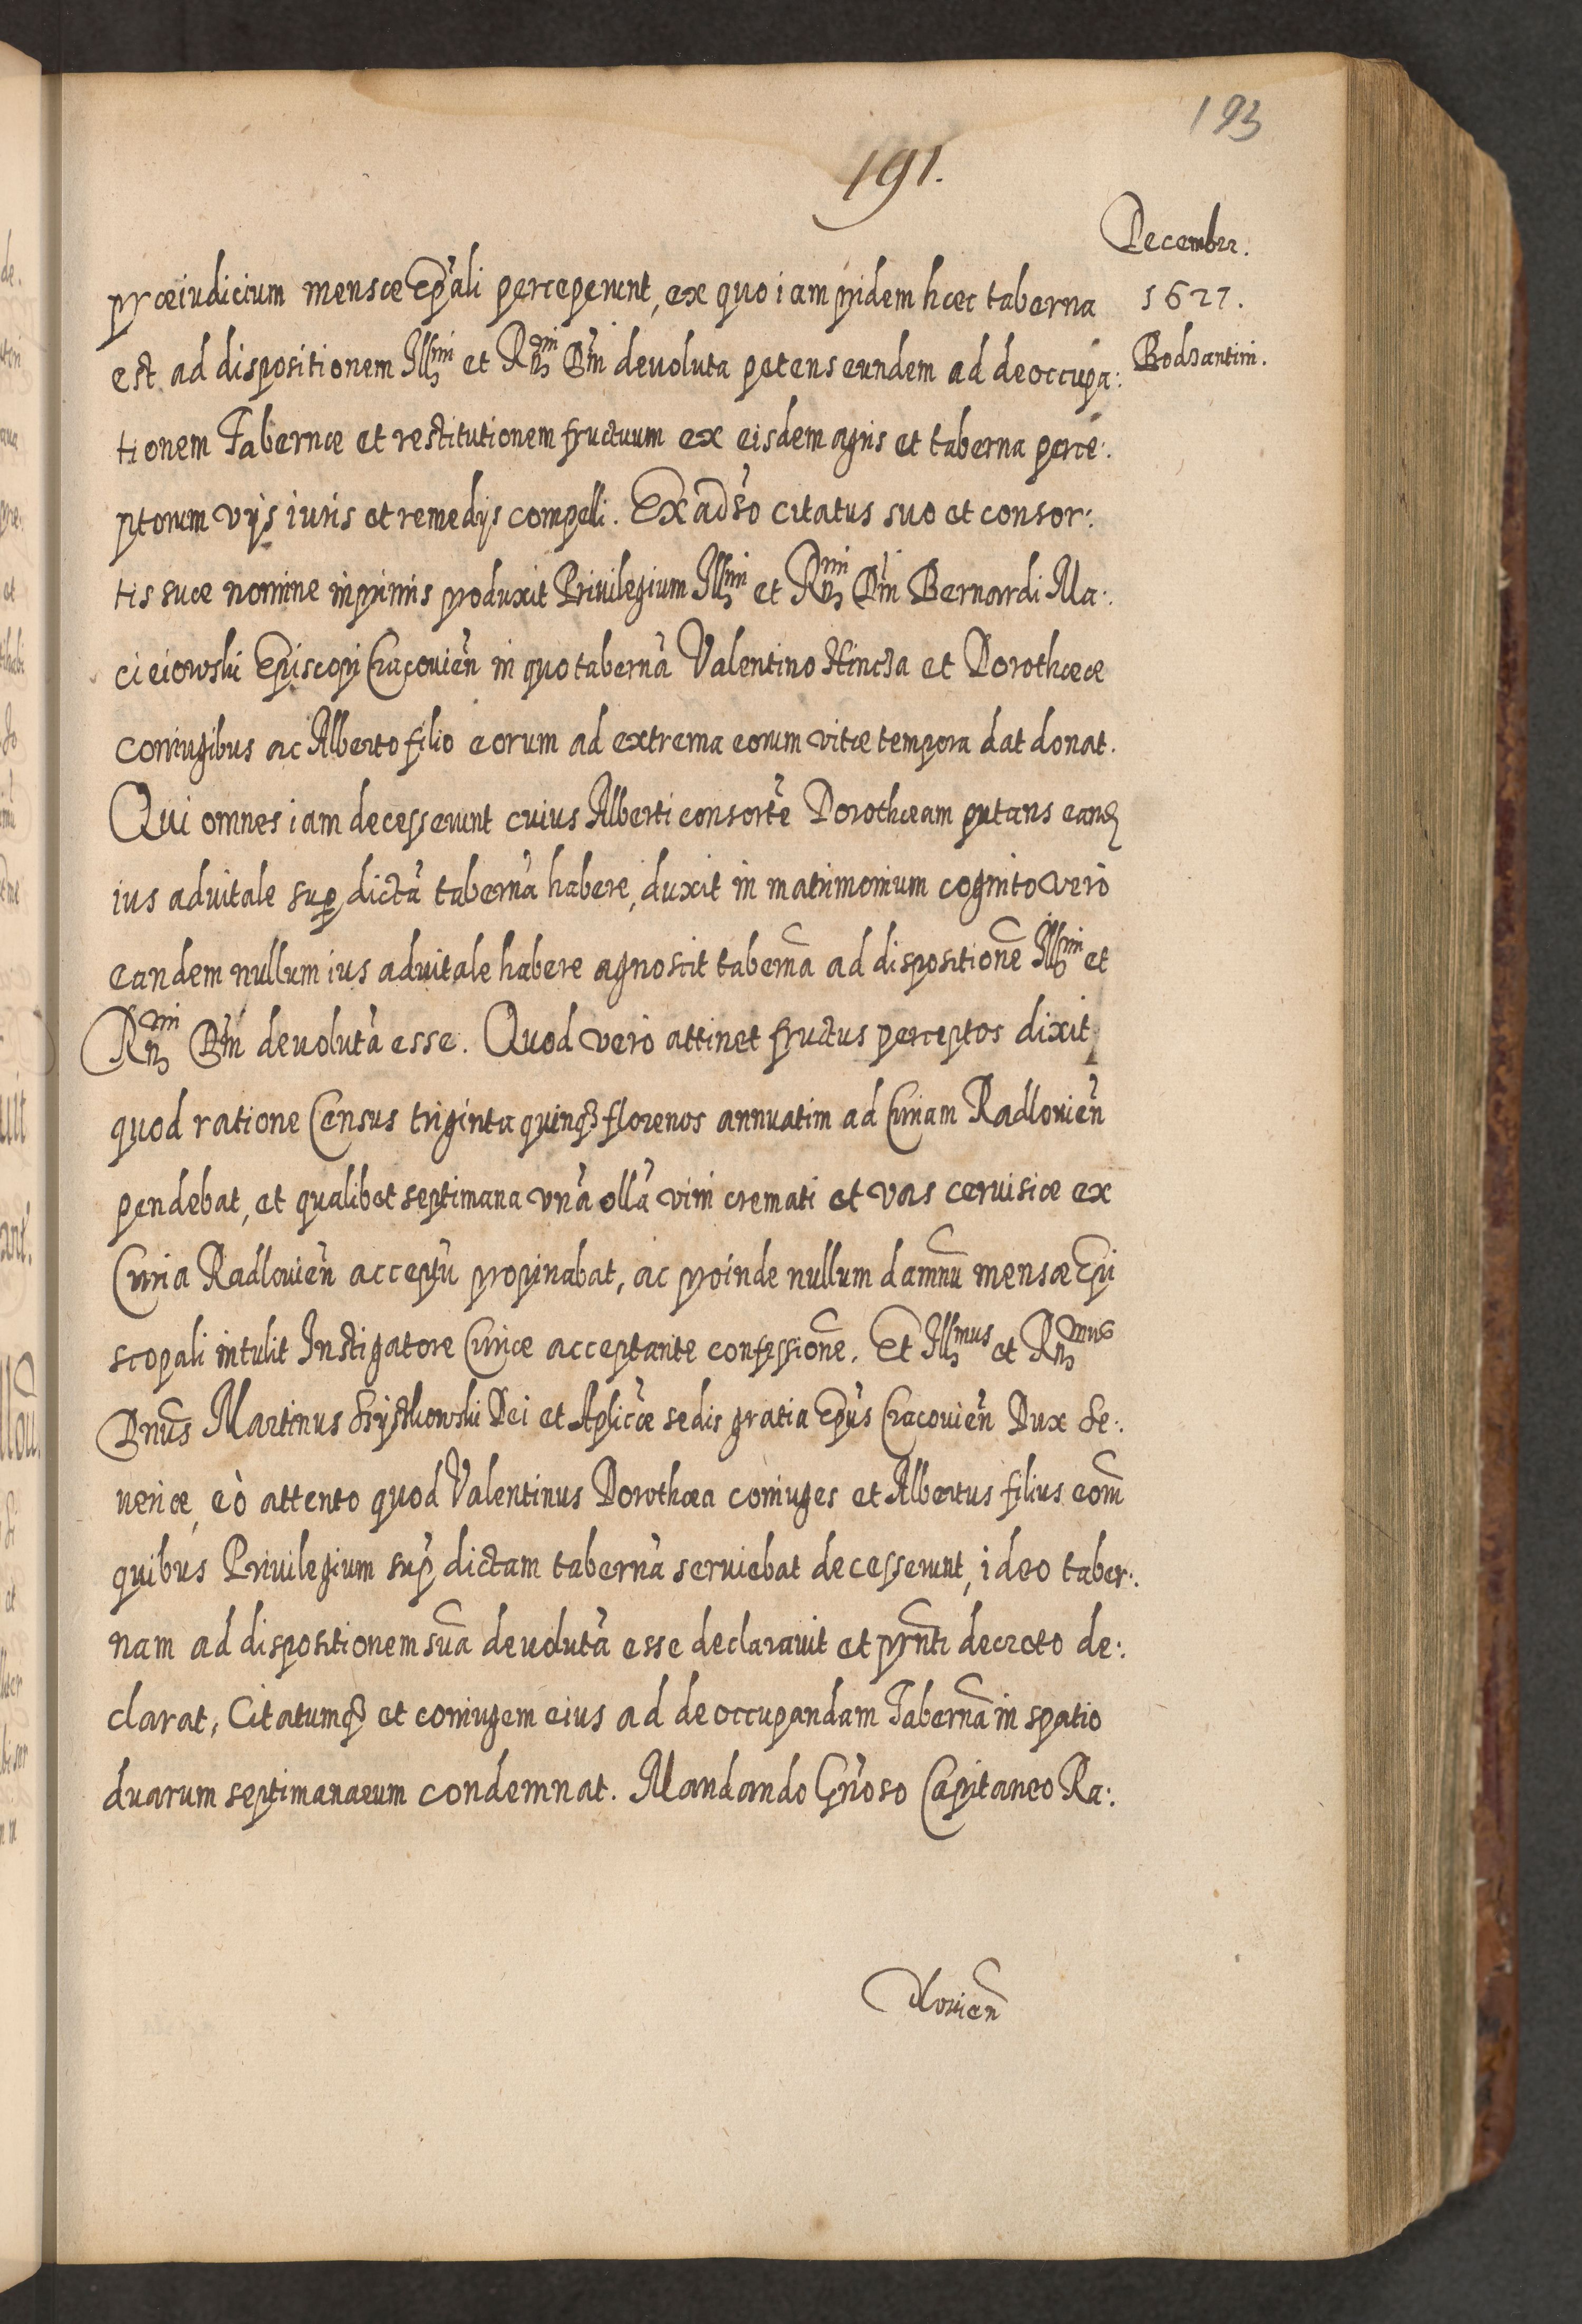 193
191.
Decembr.
1627.
Bodzantini.
præiudicium mensæ Ep̃ali perceperunt, ex quo iam pridem hæc taberna
est ad dispositionem Illmi et Rñmi Dñi devoluta petens eundem ad deoccupa:
tionem Tabernæ et restitutionem fructuum ex eisdem agris et taberna perce:
ptorum vijs iuris et remedijs compelli. Ex adũso citatus suo et consor:
tis suæ nomine inprimis produxit Privilegium Illmi et Rñmi Dñi Bernardi Ma:
cieiowski Episcopi Cracovień in quo tabernã Valentino Hincza et Dorothææ
coniugibus ac Alberto filio eorum ad extrema eorum vitæ tempora dat donat.
Qui omnes iam decesserunt cuius Alberti consortẽ Dorothæam putans eand
ius advitale sup dictã tabernã habere, duxit in matrimonium cognito vero
eandem nullum ius advitale habere agnoscit tabernã ad dispositionẽ Illmi et
Rñmi Dñi devolutã esse. Quod vero attinet fructus perceptos dixit
quod ratione Census triginta quinq florenos annuatim ad Curiam Radlovień
pendebat, et qualibet septimana vnã ollã vini cremati et vas cervisiæ ex
Curia Radlovień acceptũ propinabat, ac proinde nullum damnũ mensæ Epi
scopali intulit Instigatore Curiæ acceptante confessionẽ. Et Illmus et Rñmus
Dnũs Martinus Szyszkowski Dei et Aplicæ sedis gratia Epũs Cracovień Dux Se:
veriæ, eò attento quod Valentinus Dorothæa coniuges et Albertus filius eorũ
quibus Privilegium sup̃ dictam tabernã serviebat decesserunt, ideo taber:
nam ad dispositionem suã devolutã esse declaravit et prñti decreto de:
clarat, Citatumq et coniugem eius ad deoccupandam Tabernã in spatio
duarum septimanarum condemnat. Mandando Gñoso Capitaneo Ra:
dlovień